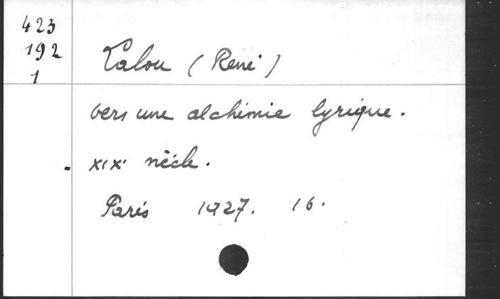 423
192
1
Lalou (René)
vers une alchimie lyrique.
XIXe siècle.
Paris 1927. 16.